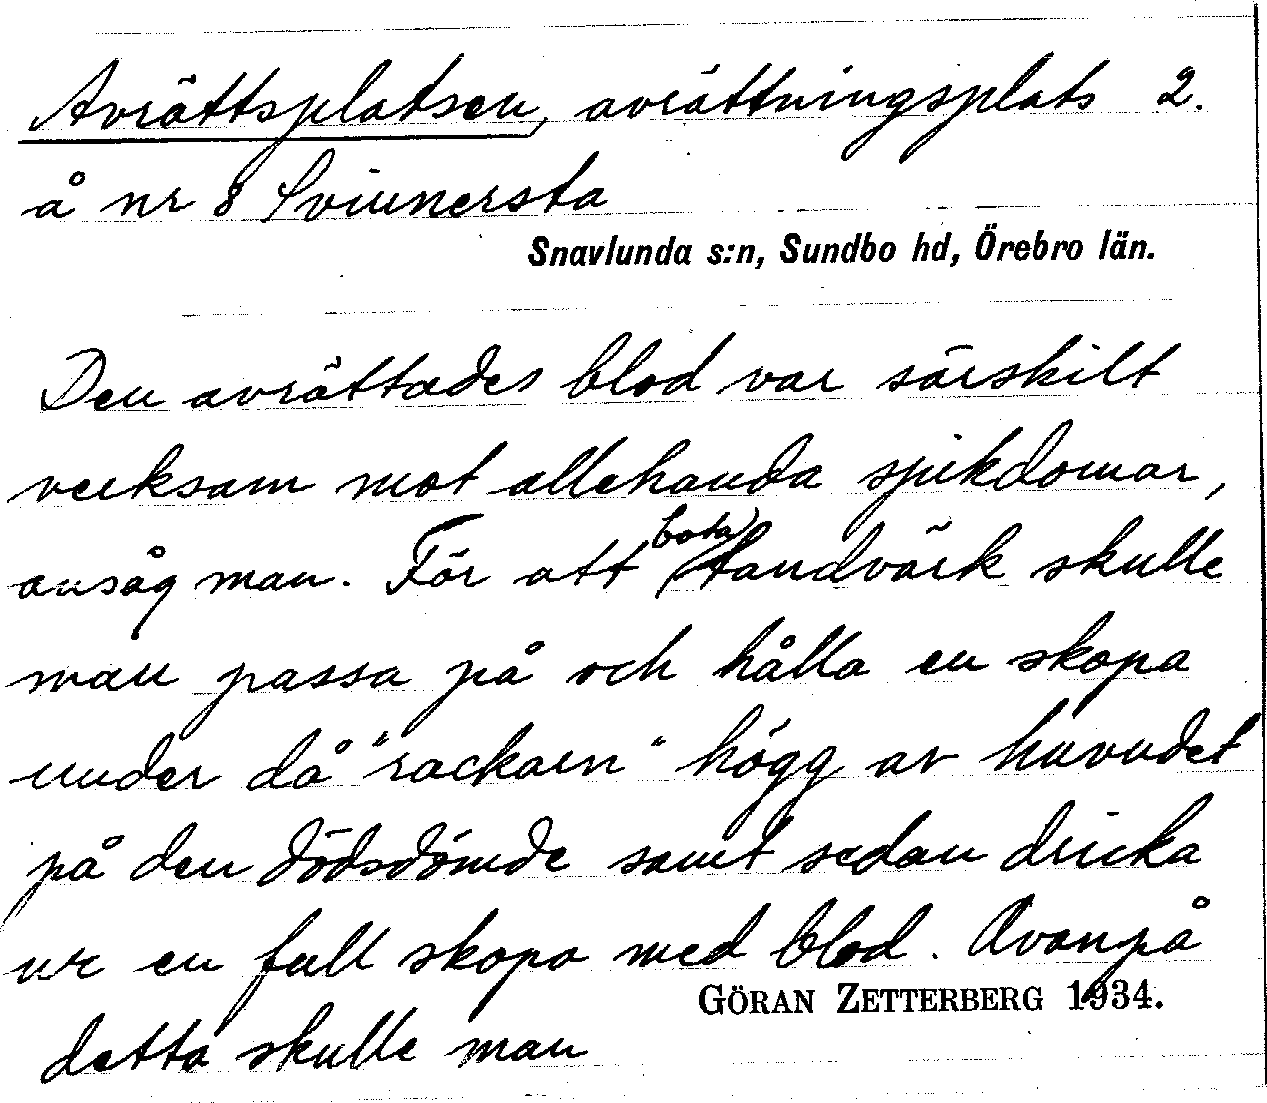 Avrättsplatsen, avrättningsplats 2.
å nr 8 Svinnersta
Snavlunda s:n, Sundbo hd, Örebro län.
Den avrättades blod var särskilt
verksam mot allehanda sjukdomar,
ansåg man. För att bota tandvärk skulle
man passa på och hålla en skopa
under då "rackarn" högg av huvudet
på den dödsdömde samt sedan dricka
ur en full skopa med blod. Ovanpå
GÖRAN ZETTERBERG 1934.
detta skulle man